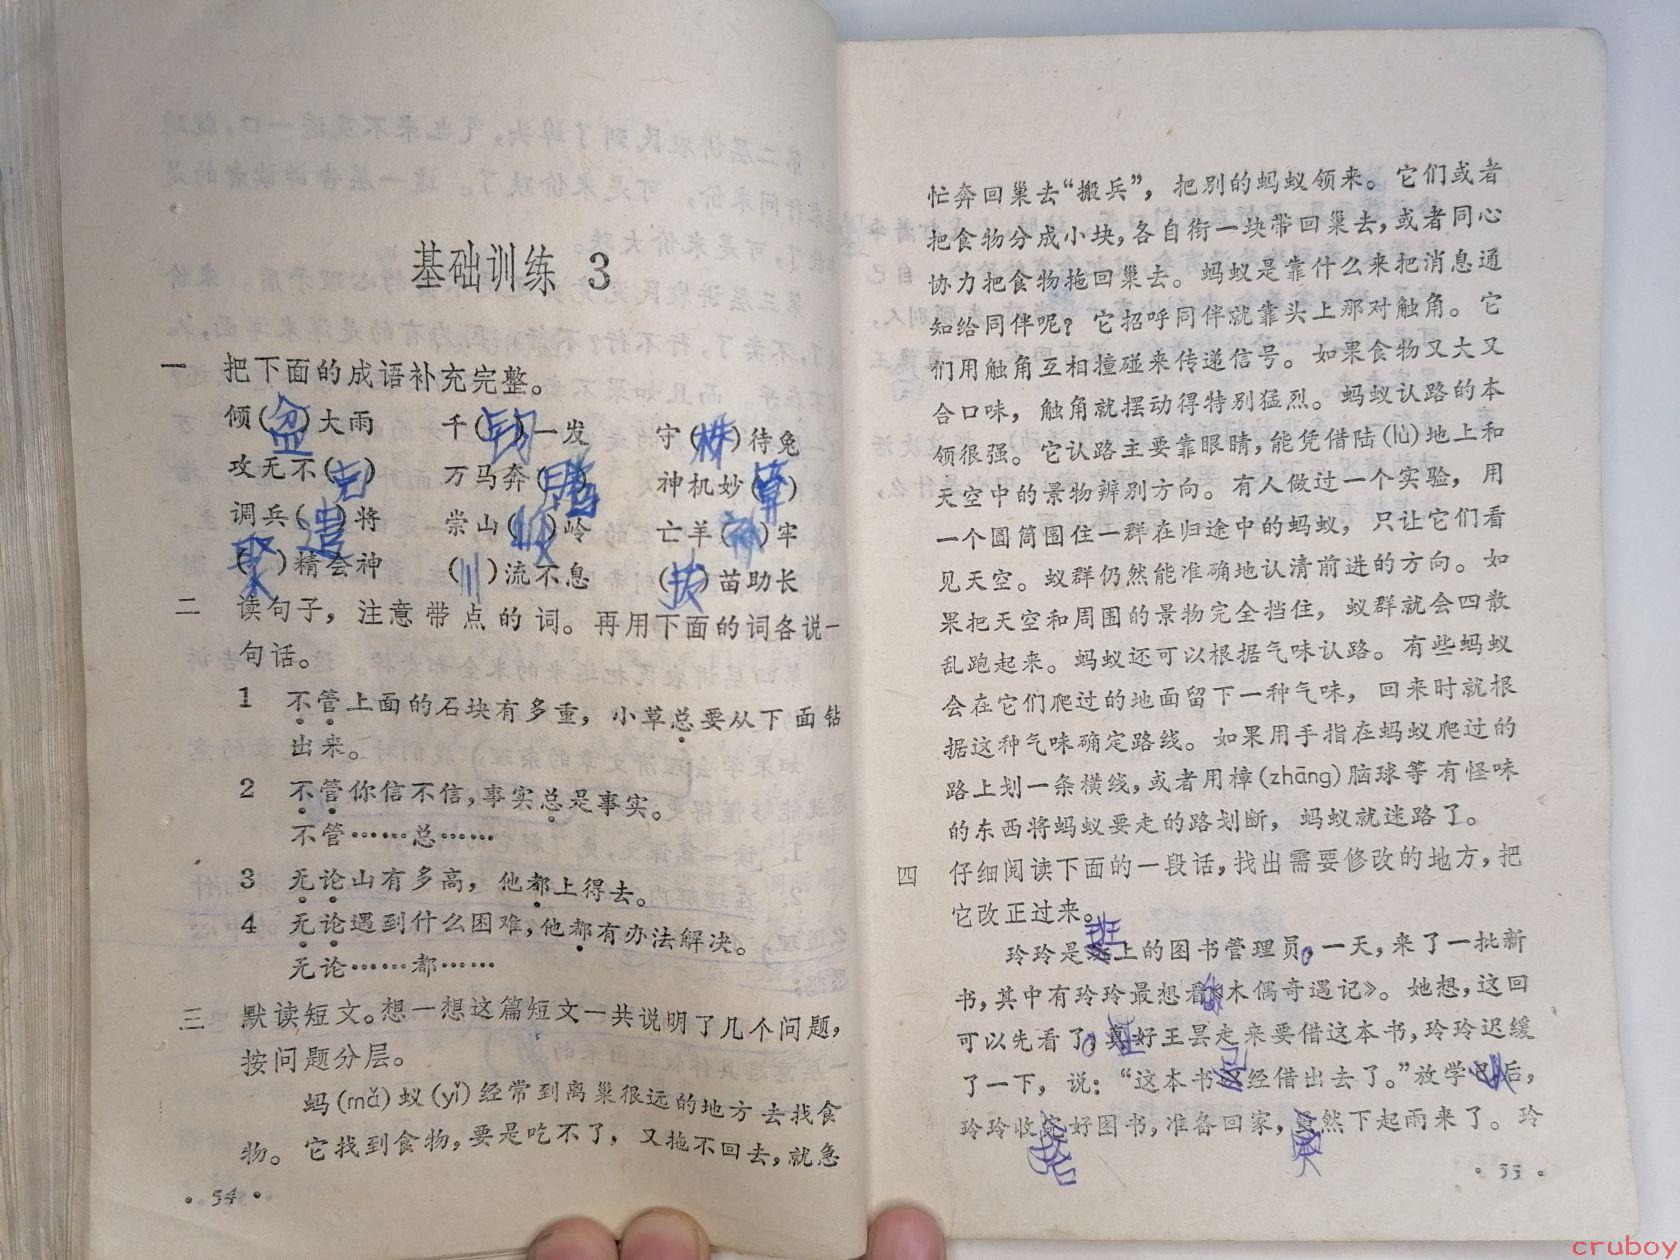 基础训练 3
一 把下面的成语补充完整。
倾(盆)大雨 千(钧)一发 守(株)待兔
攻无不(克) 万马奔(腾) 神机妙(算)
调兵(遣)将 崇山( )岭 亡羊( )牢
(聚)精会神 (川)流不息 (拔)苗助长
二 读句子，注意带点的词。再用下面的词各说一
句话。
1 不管上面的石块有多重，小草总要从下面钻
出来。
2 不管你信不信，事实总是事实。
不管……总……
3 无论山有多高，他都上得去。
4 无论遇到什么困难，他都有办法解决。
无论……都……
三 默读短文。想一想这篇短文一共说明了几个问题，
按问题分层。
蚂(mǎ)蚁(yǐ)经常到离巢很远的地方去找食
物。它找到食物，要是吃不了，又拖不回去，就急
·54·
忙奔回巢去“搬兵”，把别的蚂蚁领来。它们或者
把食物分成小块，各自衔一块带回巢去，或者同心
协力把食物拖回巢去。蚂蚁是靠什么来把消息通
知给同伴呢？它招呼同伴就靠头上那对触角。它
们用触角互相撞碰来传递信号。如果食物又大又
合口味，触角就摆动得特别猛烈。蚂蚁认路的本
领很强。它认路主要靠眼睛，能凭借陆(lù)地上和
天空中的景物辨别方向。有人做过一个实验，用
一个圆筒围住一群在归途中的蚂蚁，只让它们看
见天空。蚁群仍然能准确地认清前进的方向。如
果把天空和周围的景物完全挡住，蚁群就会四散
乱跑起来。蚂蚁还可以根据气味认路。有些蚂蚁
会在它们爬过的地面留下一种气味，回来时就根
据这种气味确定路线。如果用手指在蚂蚁爬过的
路上划一条横线，或者用樟(zhāng)脑球等有怪味
的东西将蚂蚁要走的路划断，蚂蚁就迷路了。
四 仔细阅读下面的一段话，找出需要修改的地方，把
它改正过来。
班
玲玲是上的图书管理员。一天，来了一批新
书，其中有玲玲最想看《木偶奇遇记》。她想，这回
可以先看了。好王昙走来要借这本书，玲玲迟缓
了一下，说：“这本书已经借出去了。”放学以后，
玲玲收好图书，准备回家，然下起雨来了。玲
·55·
cruboy